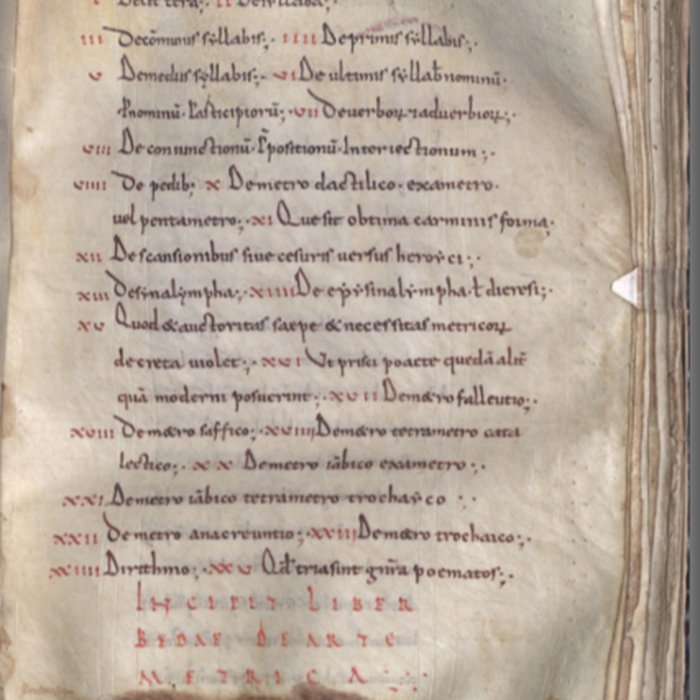 I De littera; II De sillaba;
III De cōmunis syllabis;. IIII De primis syllabis;.
V De mediis syllabis;. VI De ultimis syllab̄ nominū.
P̄nominū. Participiorū; VII De verborꝝ ⁊ adverbiorꝝ;.
VIII De coniunctionū. P̄positionū. Interiectionum;.
VIIII De pedib; X De metro dactilico. exametro.
vel pentametro;. XI Que sit obtima carminis forma;.
XII De scansionibus sive cesuris versus heroẏci;.
XIII De sẏnalẏmpha;. XIIII De epẏsinalẏmpha. ł dieresi;.
XV Quod & auctoritas saepe & necessitas metricorꝝ
decreta violet;. XVI Ut prisci poaete quedā alit̄
quā moderni posuerint;. XVII De m&ro falleutio;.
XVIII De m&ro saffico;. XVIIII De m&ro tetrametro cata
lectico;. XX De metro iābico exametro;.
XXI De metro iābico tetrametro trochaẏco;.
XXII De metro anacreuntio;. XXIII De m&ro trochaico;.
XXIIII Di rithmo;. XXV Qđ tria sint gn̄ra poematos;.
INCIPIT LIBER
BEDAE DE ARTE
METRICA;.